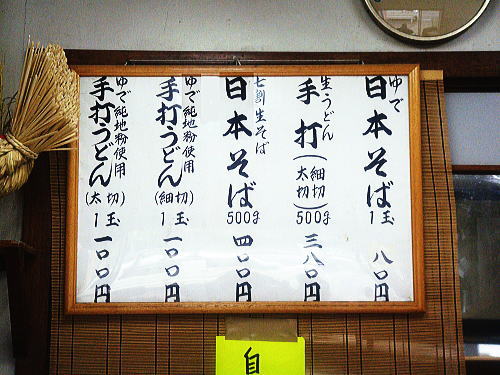 ゆで
日本そば
1玉
八〇円
生うどん
手打(太切 細切)
500g
三八〇円
七割生そば
日本そば
500g
四〇〇円
ゆで純地粉使用
手打うどん
(細切)
1玉
一〇〇円
ゆで純地粉使用
手打うどん
(太切)
1玉
一〇〇円
自